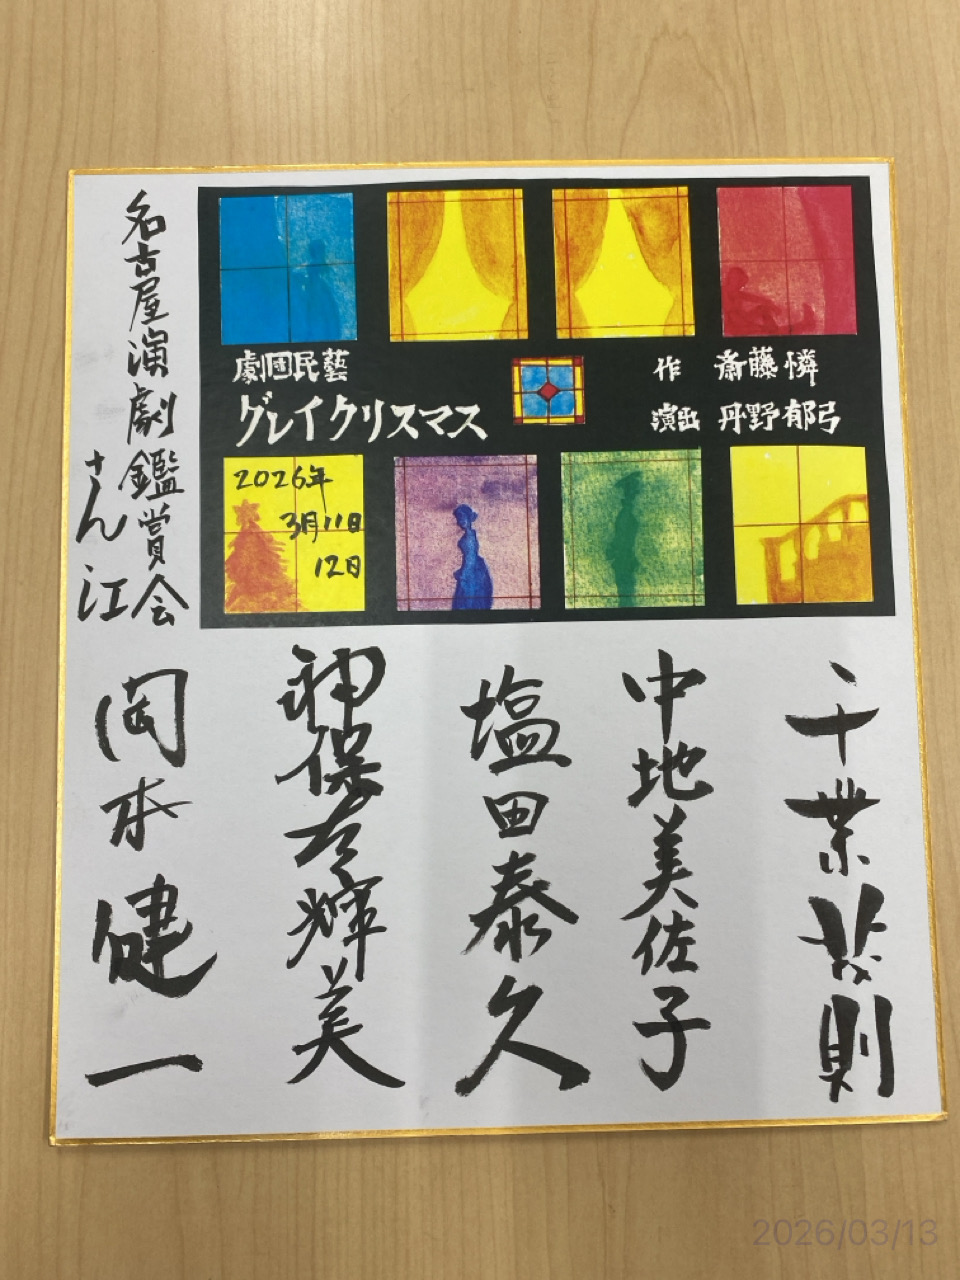 劇団民藝
グレイクリスマス
作 斎藤憐
演出 丹野郁弓
2026年
3月11日
12日
名古屋演劇鑑賞会
さん江
千葉茂則
中地美佐子
塩田泰久
神保有輝美
岡本健一
2026/03/13